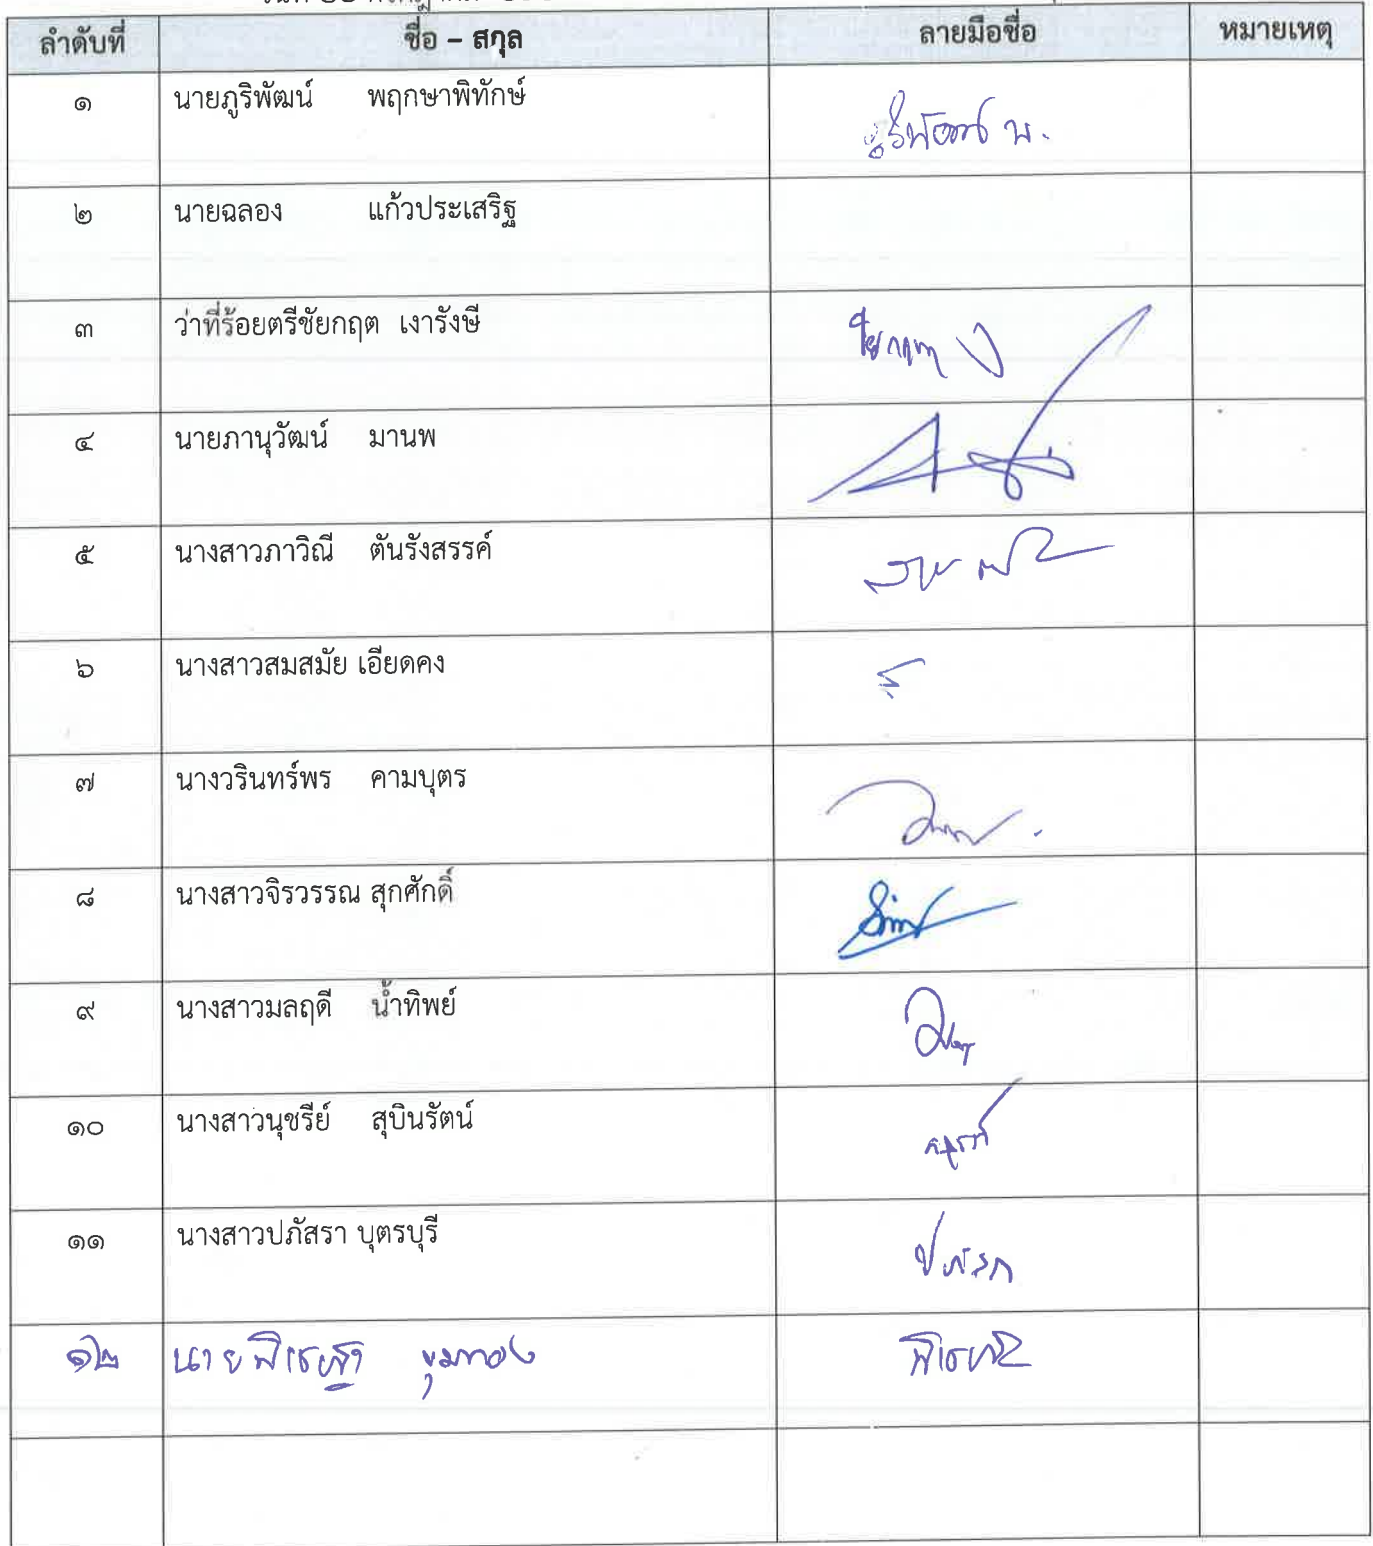 ลำดับที่ ชื่อ – สกุล ลายมือชื่อ หมายเหตุ
๑ นายภูริพัฒน์ พฤกษาพิทักษ์ ภูริพัฒน์ พ.
๒ นายฉลอง แก้วประเสริฐ
๓ ว่าที่ร้อยตรีชัยกฤต เงารังษี ชัยกฤต ง
๔ นายภานุวัฒน์ มานพ
๕ นางสาวภาวิณี ตันรังสรรค์
๖ นางสาวสมสมัย เอียดคง
๗ นางวรินทร์พร คามบุตร
๘ นางสาวจิรวรรณ สุกศักดิ์
๙ นางสาวมลฤดี น้ำทิพย์
๑๐ นางสาวนุชรีย์ สุบินรัตน์
๑๑ นางสาวปภัสรา บุตรบุรี ปภัสรา
๑๒ นายพิเชษฐ์ ชุมทอง